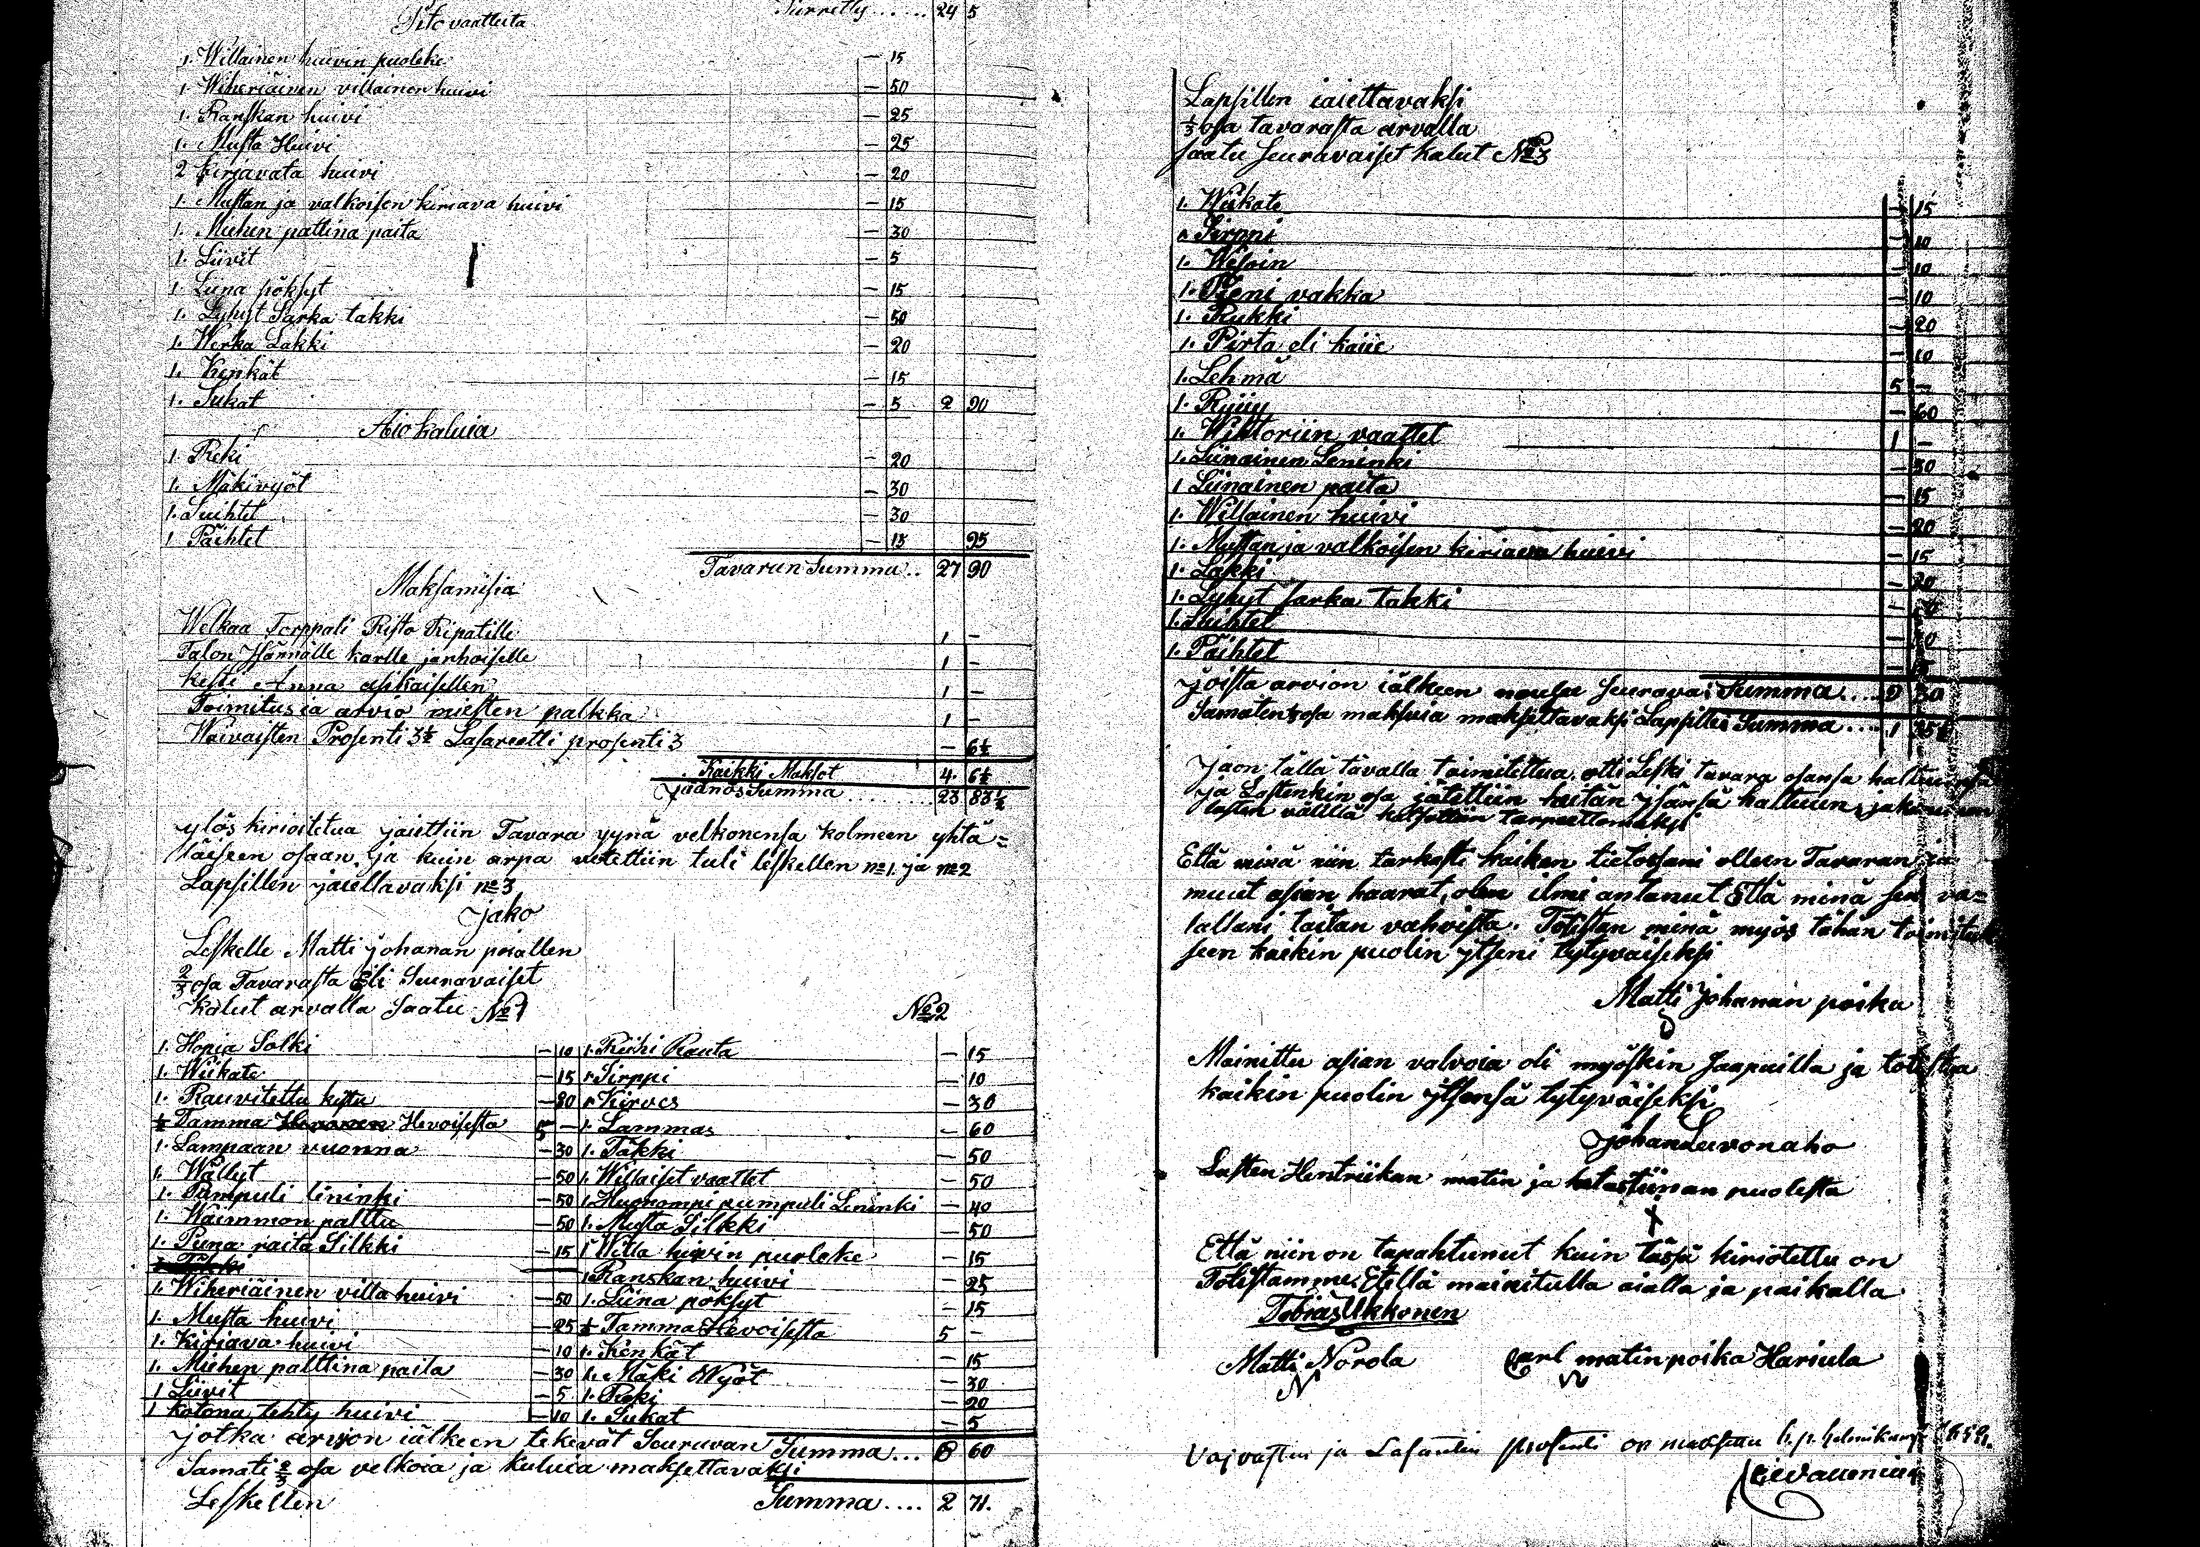 Pito vaatteita Siirretty...... 24 5
1. Willainen huivin puoleke — 15
1. Wiheriäinen villainen huivi — 50
1. Ranskan huivi — 25
1. Musta Huivi — 25
2 kirjavata huivi — 20
1. Mustan ja valkoisen kiriava huivi — 15
1. Miehen palttina paita — 30
1. Liivit — 5
1 Liina pöksyt — 15
1. Lyhyt Sarka takki — 50
1. Werka Lakki — 20
1. Kenkät — 15
1. Sukat — 5 2 90
Aio kaluia
1 Reki — 20
1. Mäkivyöt — 30
1. Suihtet — 30
1 Päihtet — 15 95
Tavaran Summa.. 27 90
Maksamisia
Welkaa Torppali Risto Ripatille 1 —
Talon Isännälle karlle janhoiselle 1 —
kesti Anna asikaisellen 1 —
Toimitus ia arvio miesten palkka 1 —
Waivaisten Prosenti 3½ Lasareetti prosenti 3 — 6½
Kaikki Maksot 4. 6½
Jäänös Summa........ 23 83½
ylös kirioitetua jaiettiin Tavara yynä velkonensa kolmeen yhtä=
läiseen osaan, ja kuin arpa vetettiin tuli leskellen no 1. ja no 2
Lapsillen jaiettavaksi no 3
jako
Leskelle Matti Johanan poiallen
2/3 osa Tavarasta Eli Seuravaiset
kalut arvalla Saatu No 1 No 2
1. Hopia Solki — 10 1. Riihi Rauta — 15
1. Wiikate — 15 1 Sirppi — 10
1. Rauvitettu kistu — 80 1 Kirves — 30
½ Tamma Hevoisesta 5 — 1. Lammas — 60
1. Lampaan vuonna — 30 1. Täkki — 50
1. Wällyt — 50 1. Willaiset vaattet — 50
1. Pumpuli lininki — 50 1. Huonompi pumpuli Leninki — 40
1. Waimmon palttu — 50 1. Musta Silkki — 50
1. Puna raita Silkki — 15 1 Willa huivin puoleke — 15
1 Ranskan huivi — 25
1. Wiheriäinen villa huivi — 50 1. Liina pöksyt — 15
1. Musta huivi — 25 ½ Tamma Hevoisesta 5 —
1. Kirjava huivi — 10 1. Kenkät — 15
1. Miehen palttina paita — 30 1. Mäki Wyöt — 30
1 Liivit — 5 1. Reki — 20
1 kotona tehty huivi — 10 1. Sukat — 5
jotka arvion iälkeen tekevät Seuravan Summa... 60
Samati 2/3 osa velkoia ja kuluia maksettavaksi
Leskellen Summa.... 2 71.
Lapsillen iaiettavaksi
1/3 osa tavarasta arvalla
Saatu Seuravaiset kalut No 3
1. Wiikate — 15
1 Sirppi — 10
1. Wesoin — 10
1. Pieni vakka — 10
1. Rukki — 20
1. Pirta eli kaiie — 10
1. Lehmä 5 —
1. Ryiiy — 60
1. Wilttoriin vaattet 1 —
1. Liinainen Leninki — 30
1 Liinainen paita — 15
1. Willainen huivi — 20
1. Mustan ja valkoisen kiriava huivi — 15
1. Lakki — 20
1. Lyhyt sarka takki —
1. Suihtet —
1. Päihtet —
joista arvion iälkeen nousee Seurava Summa....
Samaten 1/3 osa maksuia maksettavaksi Lapsillen Summa.... 1
Jaon tällä tävalla toimitettua, otti Leski tavara osansa haltuunsa
ja Lastenkin osa jätettiin heitän Isänsä haltuun, jakaminen
lasten välillä katsottiin tarpeettomaksi
Että minä niin tarkasti kaiken tietossani olleen Tavaran ja
muut asian haarat, olen ilmi antanut Että minä sen va=
lallani taitan vahvista. Totistan minä myös tähän toimituk
seen kaikin puolin ytseni tytyväiseksi
Matti Johanan poika
Mainittu asian valvoia oli myöskin saapuilla ja totistaa
kaikin puolin ytsensä tytyväiseksi
Johan Luvonaho
Lasten Hentriikan matin ja katastiinan puolesta
Että niin on tapahtunut kuin tässä kiriotettu on
Totistamme Etellä mainitulla aialla ja paikalla
Tobias Ukkonen
Matti Norola Carl matinpoika Hariula
Vaivasten ja Lasaretin prosenti on maxsettu